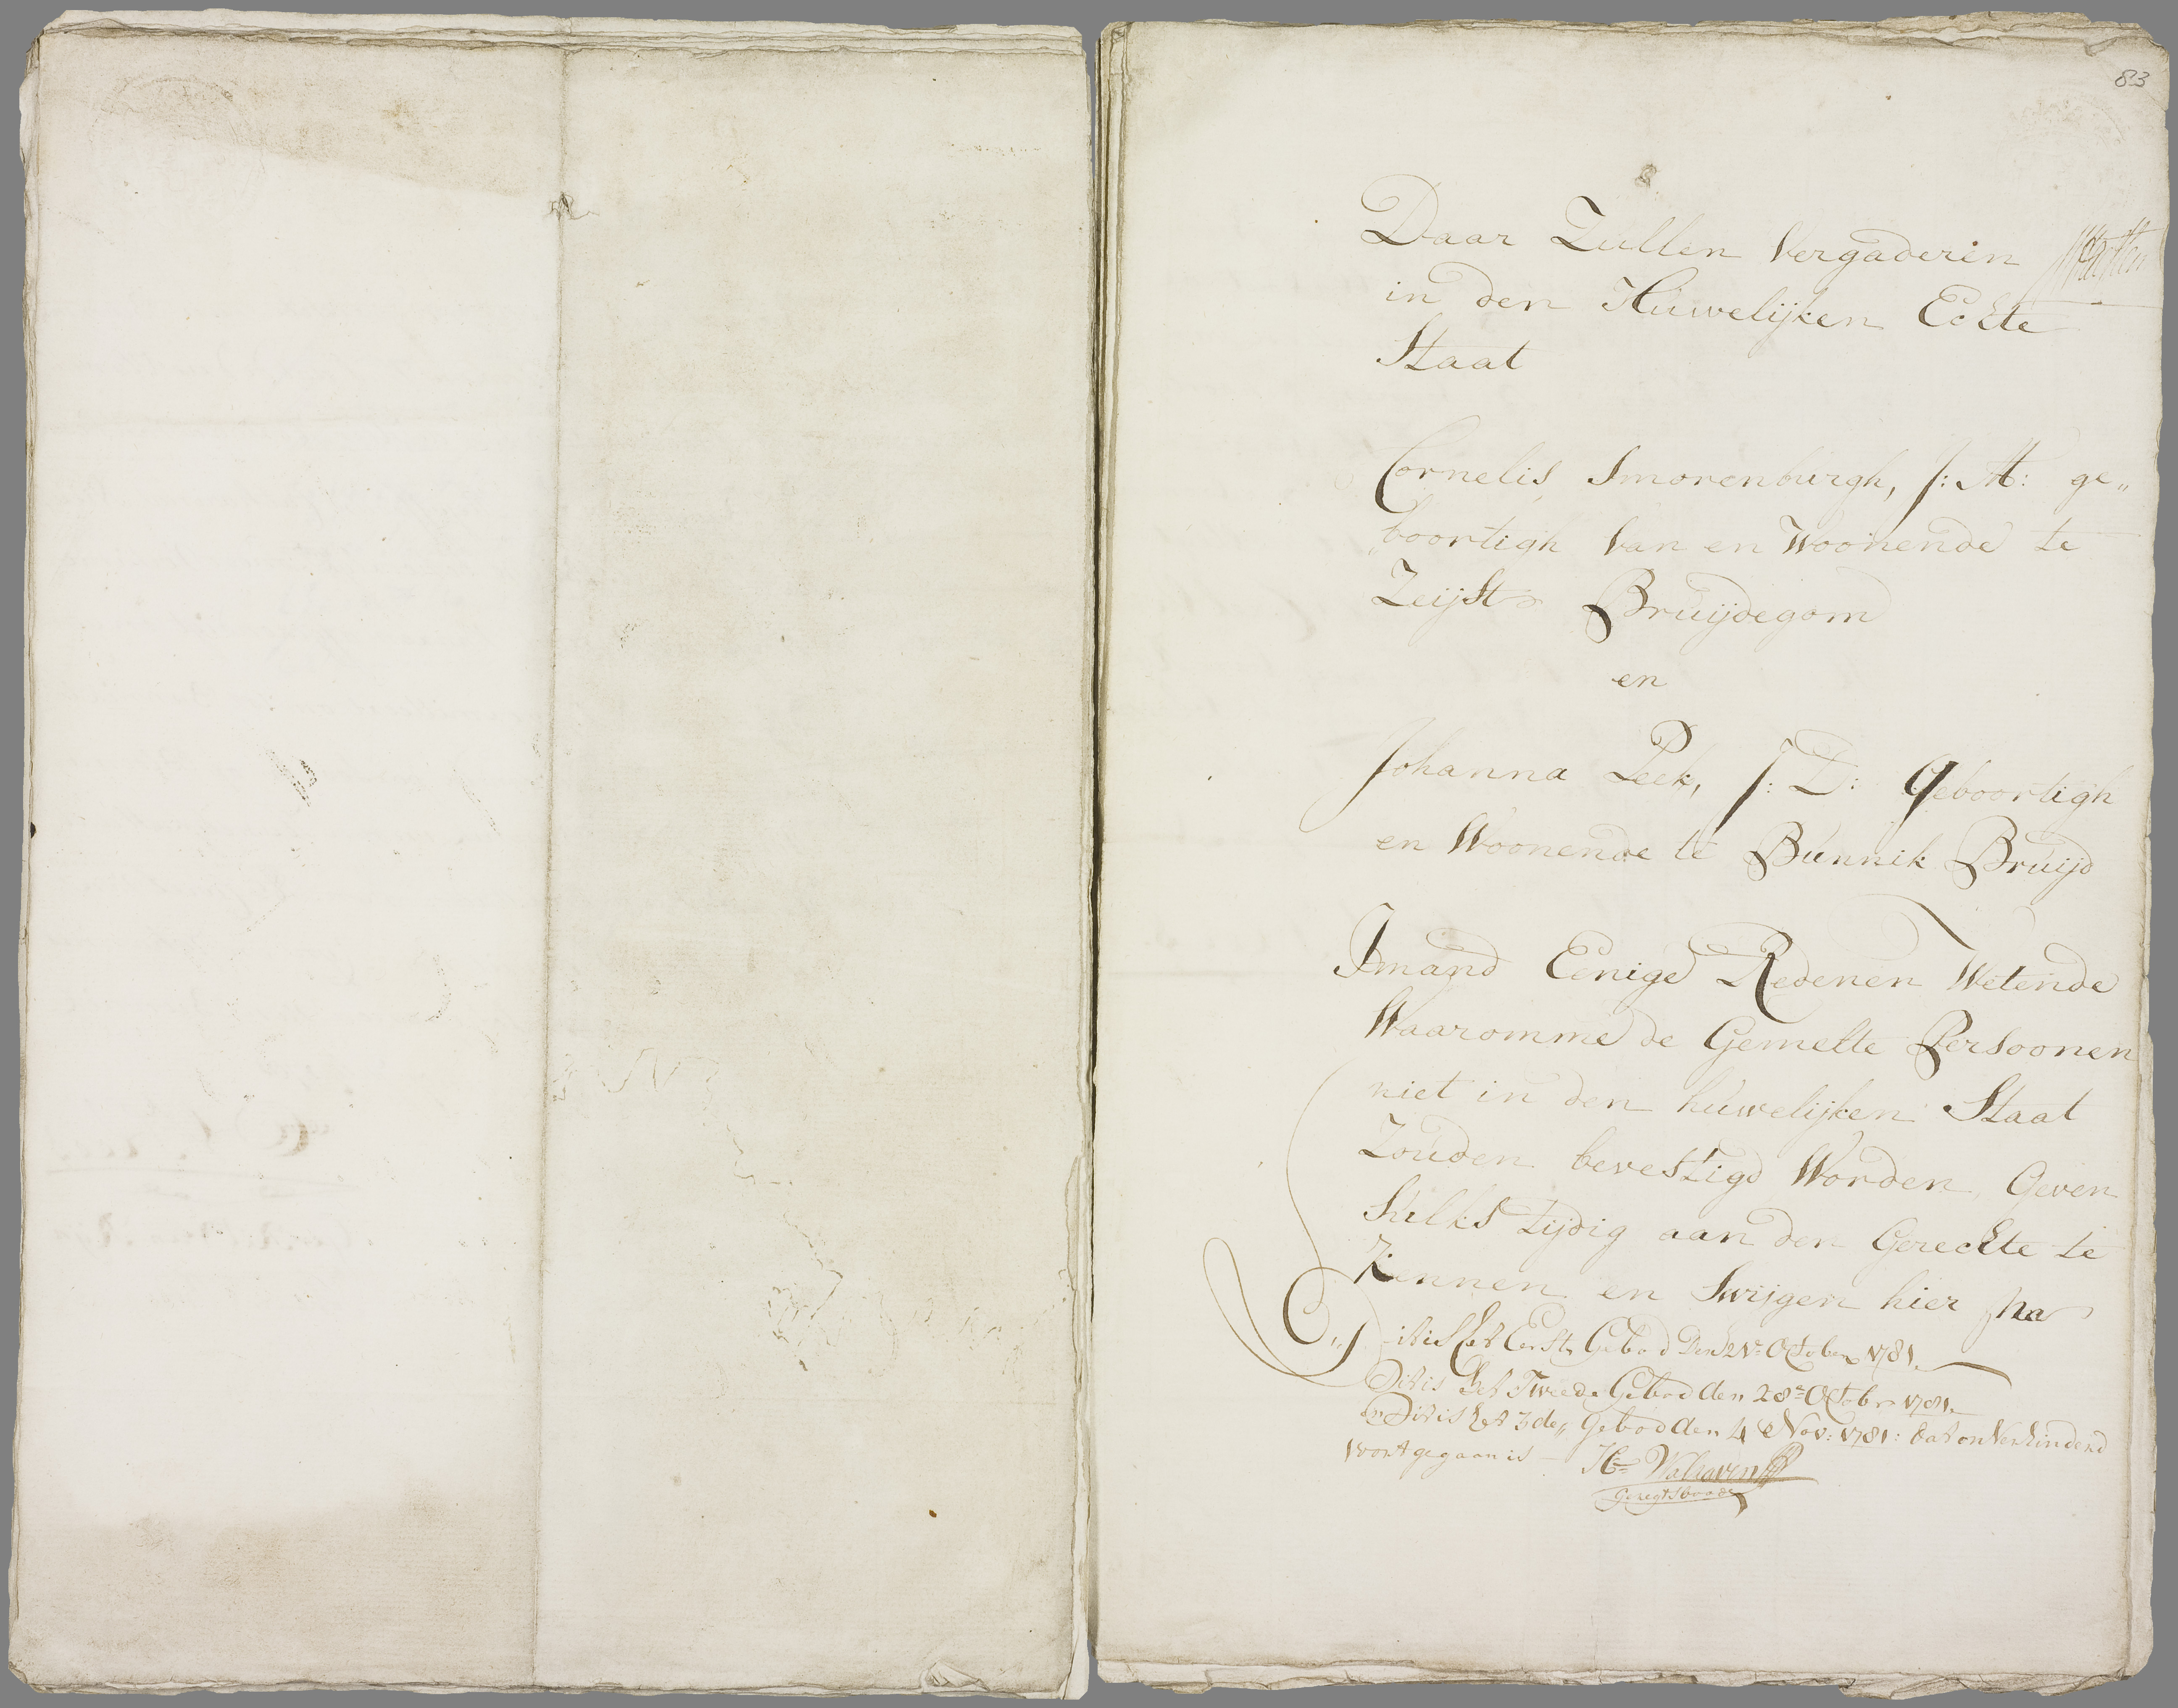 83
Daar Zullen Vergaderen
in den Huwelijken Echte
Staat
Cornelis Smorenburgh, J: M: ge„
boortigh van en Woonende te
Zeijst Bruijdegom
en
Johanna Peek, J: D: Geboortigh
en Woonende te Bunnik Bruijd
Imand Eenige Redenen Wetende
Waaromme de Gemelte Persoonen
niet in den huwelijken Staat
Zouden bevestigd Worden, Geven
Sulks tijdig aan den Gerechte te
Kennen en Swijgen hier na
Dit is het Eerste Gebod Den 21e October 1781
Dit is het Tweede Gebod den 28e Octobr 1781
En Dit is het 3de„ Gebod den 4 Nov: 1781: dat onverhinderd
voort gegaan is
Geregtsboode